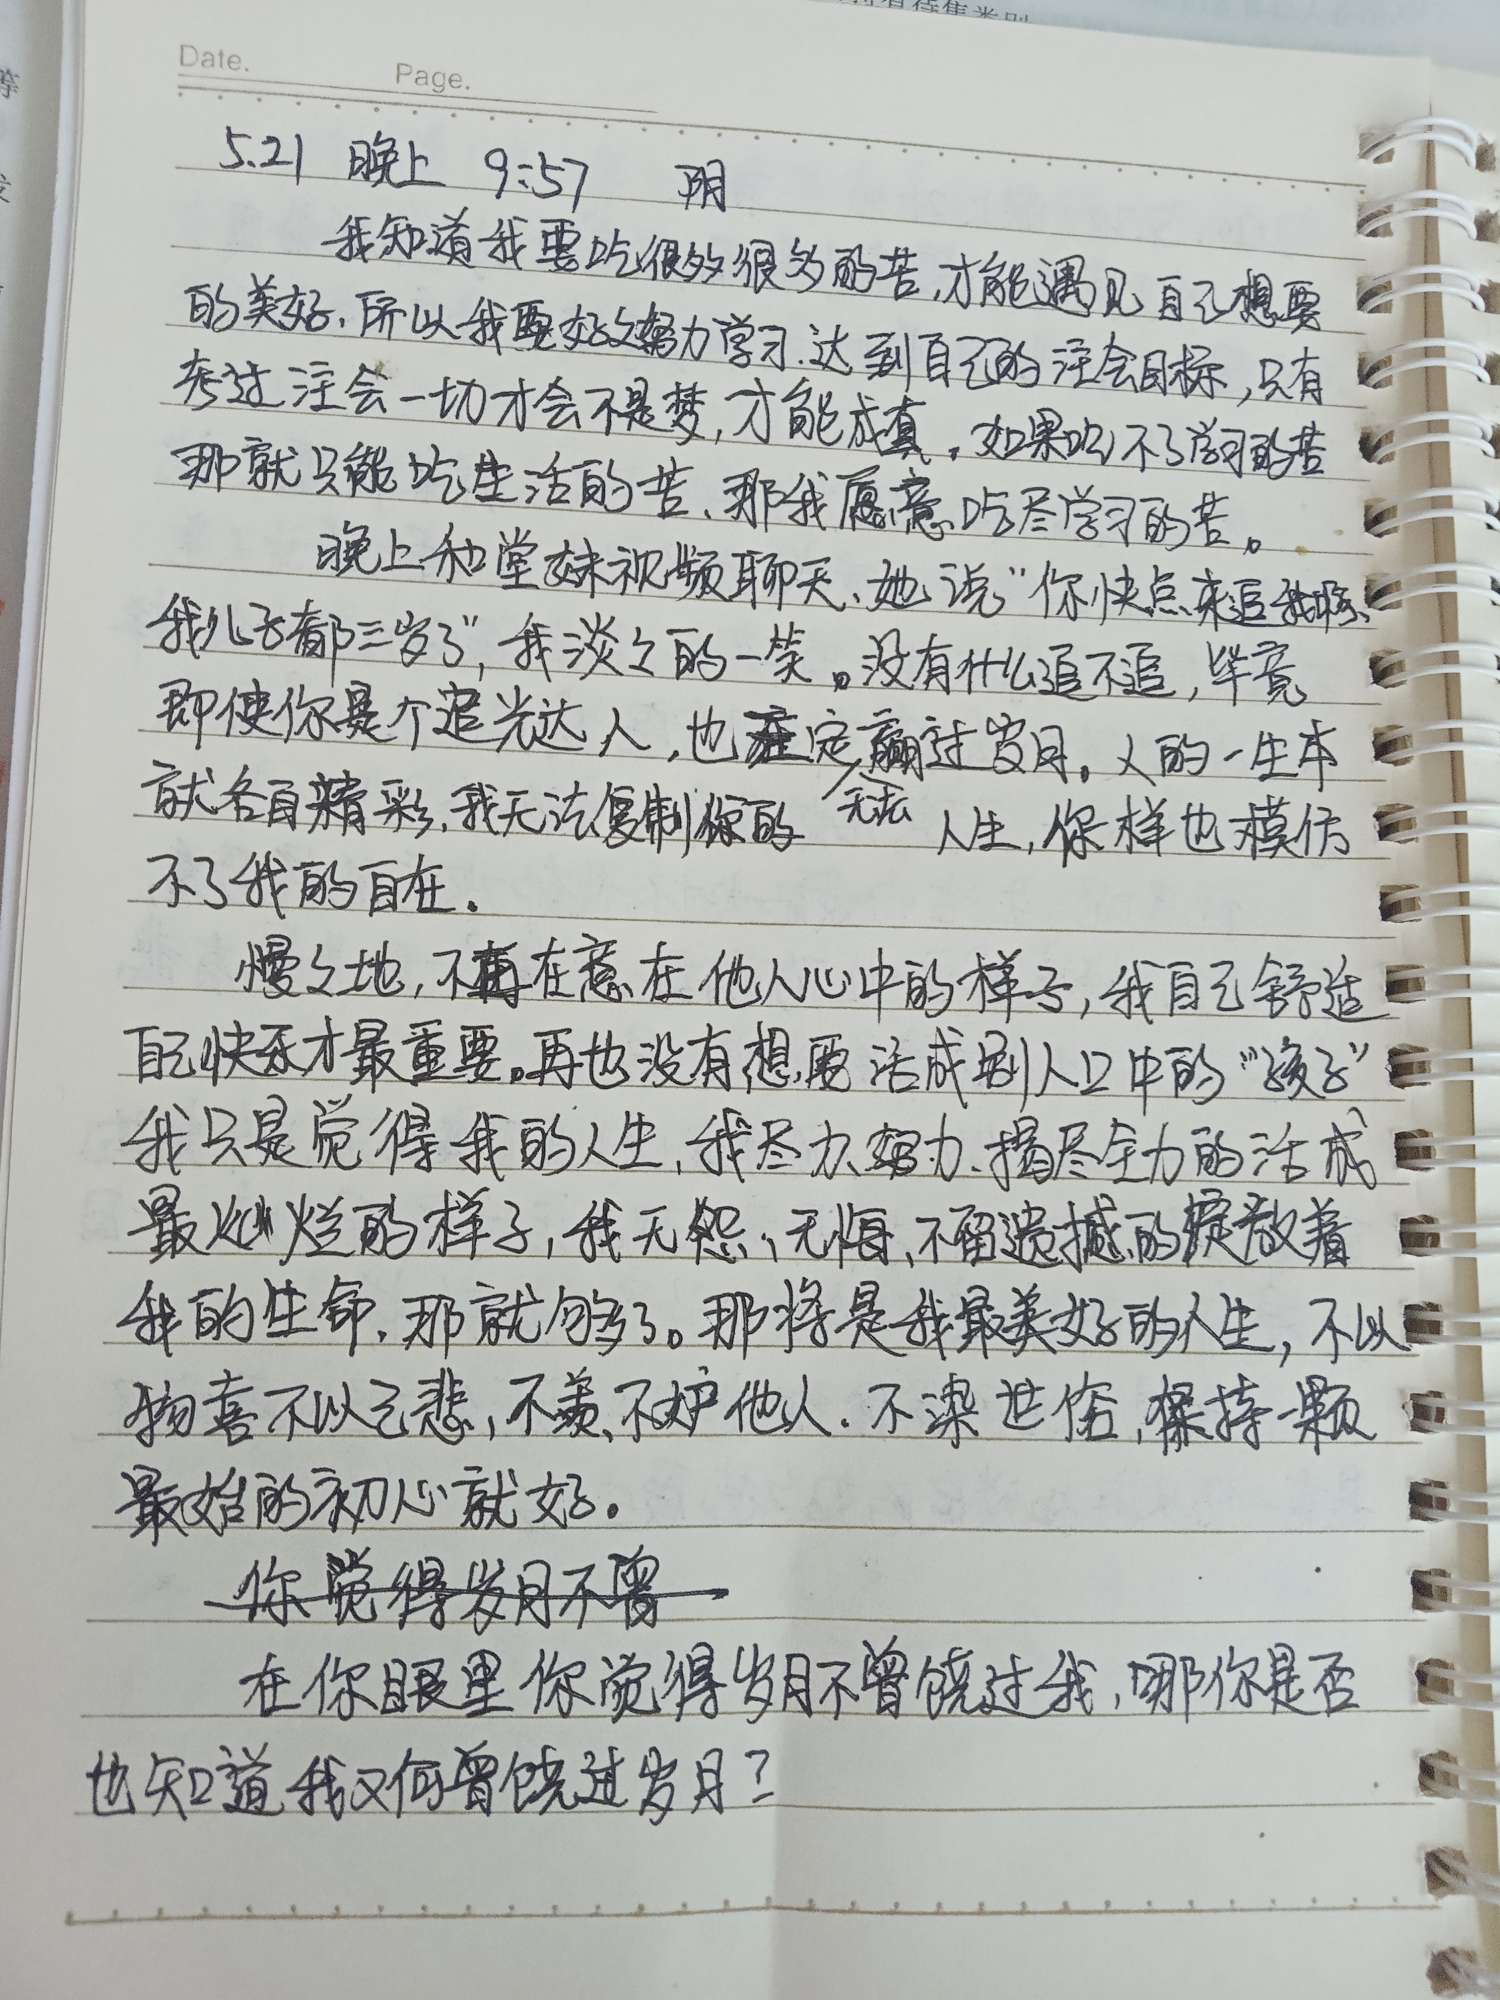 Date. Page.
5.21 晚上 9:57 阴
我知道我要吃很多很多的苦,才能遇见自己想要
的美好、所以我要好好努力学习.达到自己的注会目标,只有
考过注会一切才会不是梦,才能成真。如果吃不了学习的苦
那就只能吃生活的苦、那我愿意吃尽学习的苦。
晚上和堂妹视频聊天、她说“你快点来追我啊、
我儿子都三岁了”,我淡々的一笑。没有什么追不追,毕竟
即使你是个追光达人,也定赢过岁月。人的一生本
无法
就各自精彩、我无法复制你的人生,你样也模仿
不了我的自在.
慢々地,不再在意在他人心中的样子,我自己舒适
自己快乐才最重要。再也没有想要活成别人口中的“孩子”
我只是觉得我的人生,我尽力、努力、竭尽全力的活成
最灿烂的样子,我无怨、无悔、不留遗憾的绽放着
我的生命、那就够了。那将是我最美好的人生,不以
物喜不以己悲,不羡、不妒他人.不染世俗,保持一颗
最始的初心就好。
你觉得岁月不曾
在你眼里你觉得岁月不曾饶过我,哪你是否
也知道我又何曾饶过岁月?
等